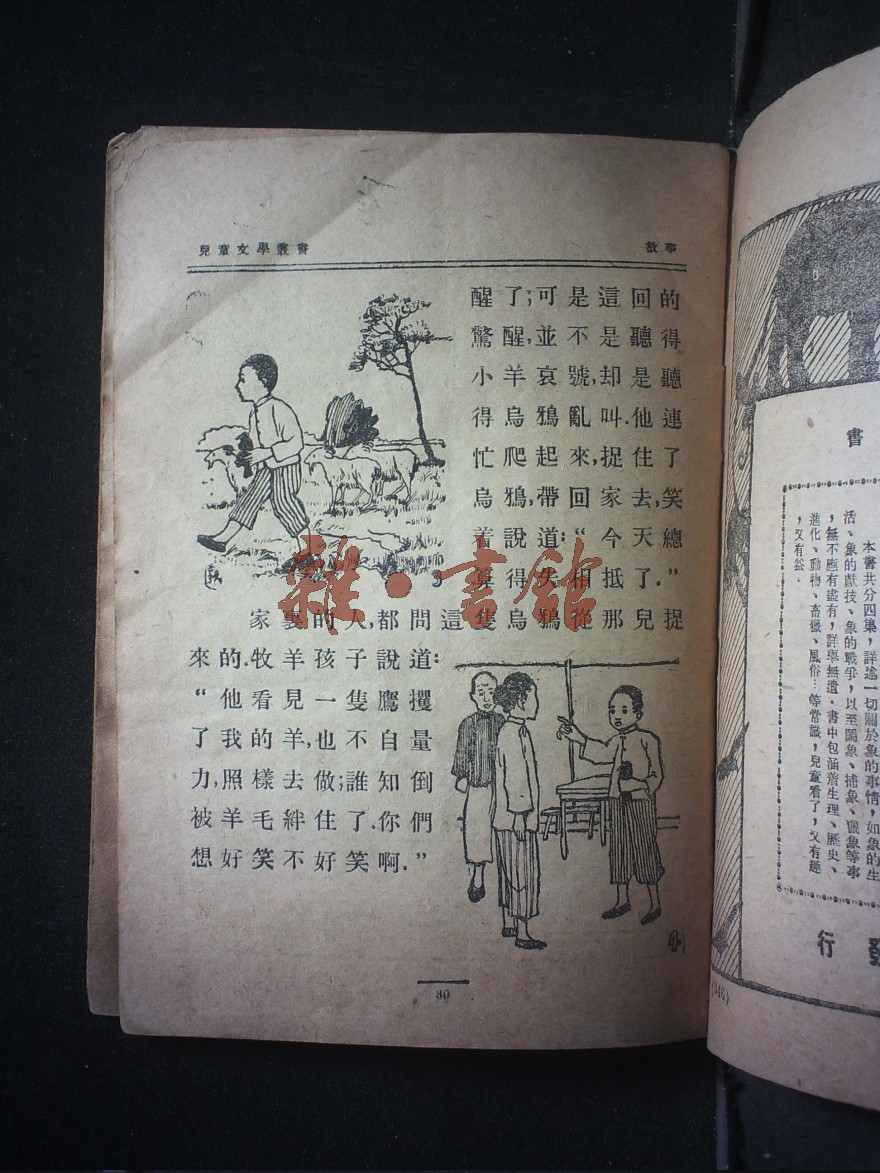 兒童文學叢書
故事
醒了;可是這回的
驚醒,並不是聽得
小羊哀號,却是聽
得烏鴉亂叫.他連
忙爬起來,捉住了
烏鴉,帶回家去,笑
着說道:“今天總
算得失相抵了.”
家裏的人,都問這隻烏鴉從那兒捉
來的.牧羊孩子說道:
“他看見一隻鷹攫
了我的羊,也不自量
力,照樣去做;誰知倒
被羊毛絆住了.你們
想好笑不好笑啊.”
30
雜·書館
書
本書共分四集,詳述一切關於象的事情,如象的生
活、象的戲技、象的戰爭,以至閱象、捕象、獵象等事
,無不應有盡有,詳舉無遺.書中包涵着生理、歷史、
進化、動物、畜獵、風俗…等常識,兒童看了,又有趣
,又有益.
發行
(046)